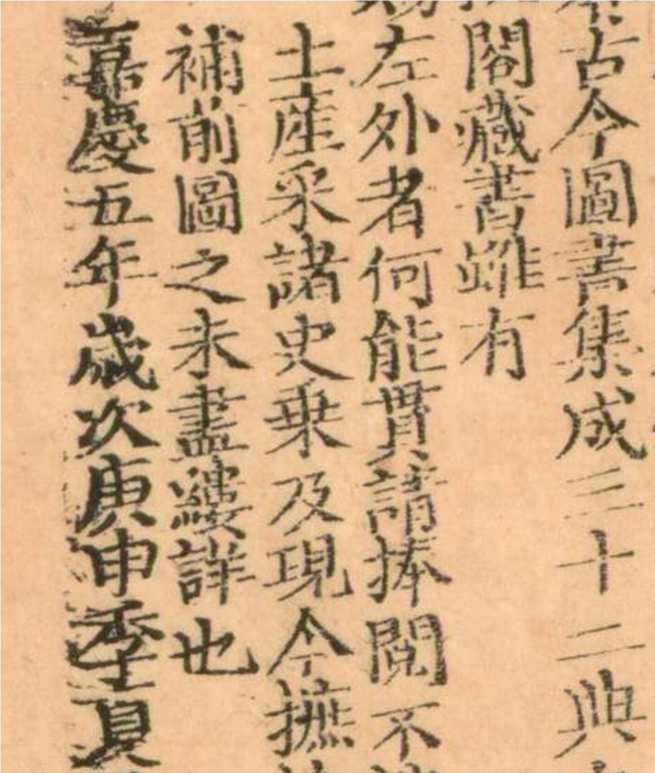 古今圖書集成三十二典
閣藏書雖有
左外者何能貫請捧閱不
土產采諸史乗及現今摭
補前圖之未盡縷詳也
嘉慶五年歲次庚申季夏